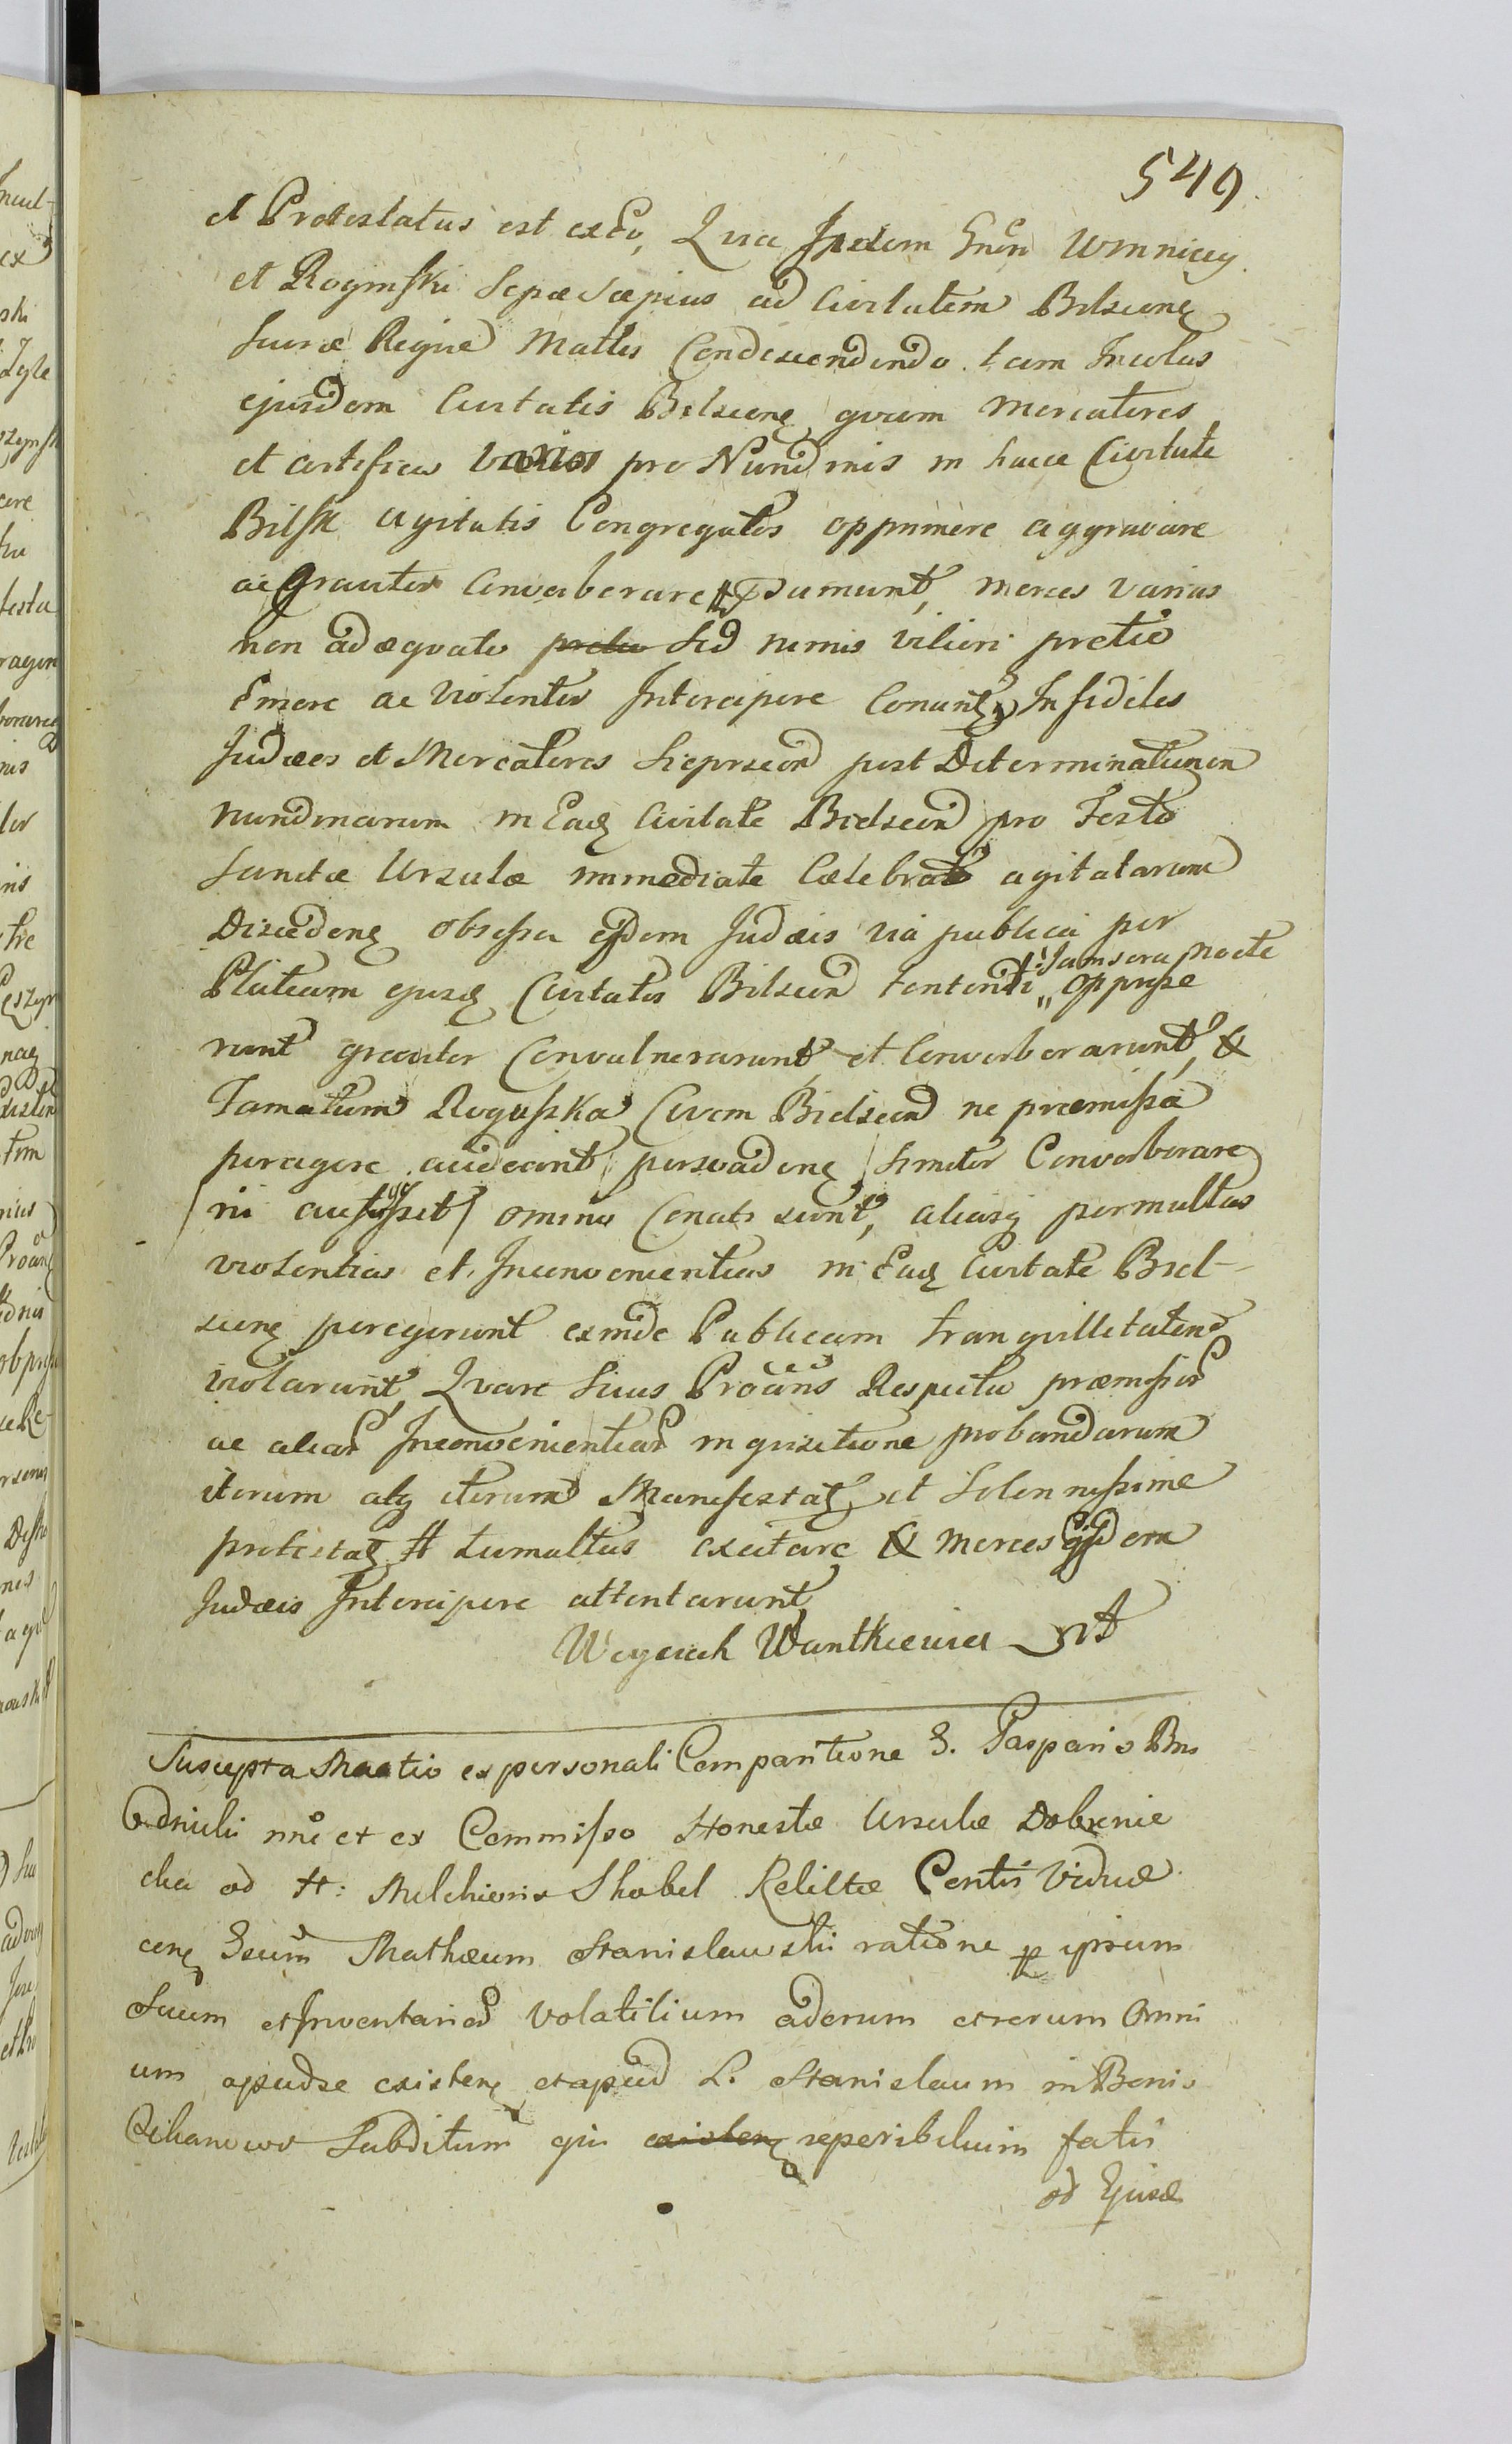 549.
et Protestatus est exeo, Qvia Iidem Gnen Umniccy
et Roginski Sepæ Sæpius ad Civitatem Bilscenę
Sacræ Regiæ Mattis Condescendendo tam Incolas
ejusdem Civitatis Bielscenę qvam Mercatores
et artifices varios pro Nundinis in hacce Civitate
Bilsk agitatis Congregatos opprimere aggravare
ac Graviter Converberare # præsumunt, merces varias
non adæqvato sed nimis viliori pretio
Emere ac Violenter Intercipere Conantur Infideles
Judæos et Mercatores post Determinationem
nundinarum in Eadę Civitate Bielscen pro Festo
Sanctæ Ursulæ immediate Celebrato agitatarum
Discedenę obsessa ejdem Judæis via publica per
Plateam ejusdę Civitatis Bilscen tentendi " Jam sera nocte oppresse
runt graviter Convulnerarunt et Converberarunt, &
Famatum Roguszka Civem Bielscen ne præmissa
peragere audeant persvadenę simiter Converberare
/ni aufugisset/ omino Conati sunt, aliasq permultas
violentias et Inconvenientias in Eadę Civitate Biel-
scenę peregerunt exinde Publicam tranquillitatem
violarunt, Qvare Suus Proans Respectu præmissor
ac aliar Inconvenientiar inqvisitione probandarum
iterum atq iterum Manifestatę et Solennissime
protestatę # tumultus excitare & merces ejsdem
Judæis Intercipere attentarunt
Woyciech Wantkiewicz mp
Suscepta Mtatio ex personali Comparitione G. Gaspari
nnie et ex Commisso Honestæ Ursulæ
cka ad H: Melchioris Skobel Relictæ Viduæ
cenę Gsum Mathæum Stanislawski ratione p ipsum
Suum et Inventarior Volatilium aderum et rerum Omni
um apud se existenę et apud L. Stanislaum in Bonis
Subditum qui reperibilium fatis
ad Ejusd